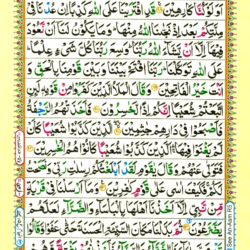 اَوَلَوْ كُنَّا كٰرِهِيْنَ ۝ قَدِ افْتَرَيْنَا عَلَى اللّٰهِ كَذِبًا اِنْ عُدْنَا فِيْ
مِلَّتِكُمْ بَعْدَ اِذْ نَجّٰىنَا اللّٰهُ مِنْهَا ؕ وَمَا يَكُوْنُ لَنَاۤ اَنْ نَّعُوْدَ
فِيْهَاۤ اِلَّاۤ اَنْ يَّشَآءَ اللّٰهُ رَبُّنَا ؕ وَسِعَ رَبُّنَا كُلَّ شَيْءٍ عِلْمًا ؕ
عَلَى اللّٰهِ تَوَكَّلْنَا ؕ رَبَّنَا افْتَحْ بَيْنَنَا وَبَيْنَ قَوْمِنَا بِالْحَقِّ وَ
اَنْتَ خَيْرُ الْفٰتِحِيْنَ ۝ وَقَالَ الْمَلَاُ الَّذِيْنَ كَفَرُوْا مِنْ قَوْمِهٖ لَئِنِ
اتَّبَعْتُمْ شُعَيْبًا اِنَّكُمْ اِذًا لَّخٰسِرُوْنَ ۝ فَاَخَذَتْهُمُ الرَّجْفَةُ
فَاَصْبَحُوْا فِيْ دَارِهِمْ جٰثِمِيْنَ ۝ الَّذِيْنَ كَذَّبُوْا شُعَيْبًا كَاَنْ
لَّمْ يَغْنَوْا فِيْهَا ۛ اَلَّذِيْنَ كَذَّبُوْا شُعَيْبًا كَانُوْا هُمُ الْخٰسِرِيْنَ ۝
فَتَوَلّٰى عَنْهُمْ وَقَالَ يٰقَوْمِ لَقَدْ اَبْلَغْتُكُمْ رِسٰلٰتِ رَبِّيْ وَنَصَحْتُ
لَكُمْ ۚ فَكَيْفَ اٰسٰى عَلٰى قَوْمٍ كٰفِرِيْنَ ۝ وَمَاۤ اَرْسَلْنَا فِيْ قَرْيَةٍ
مِّنْ نَّبِيٍّ اِلَّاۤ اَخَذْنَاۤ اَهْلَهَا بِالْبَاْسَآءِ وَالضَّرَّآءِ لَعَلَّهُمْ
يَضَّرَّعُوْنَ ۝ ثُمَّ بَدَّلْنَا مَكَانَ السَّيِّئَةِ الْحَسَنَةَ حَتّٰى عَفَوْا وَّقَالُوْا